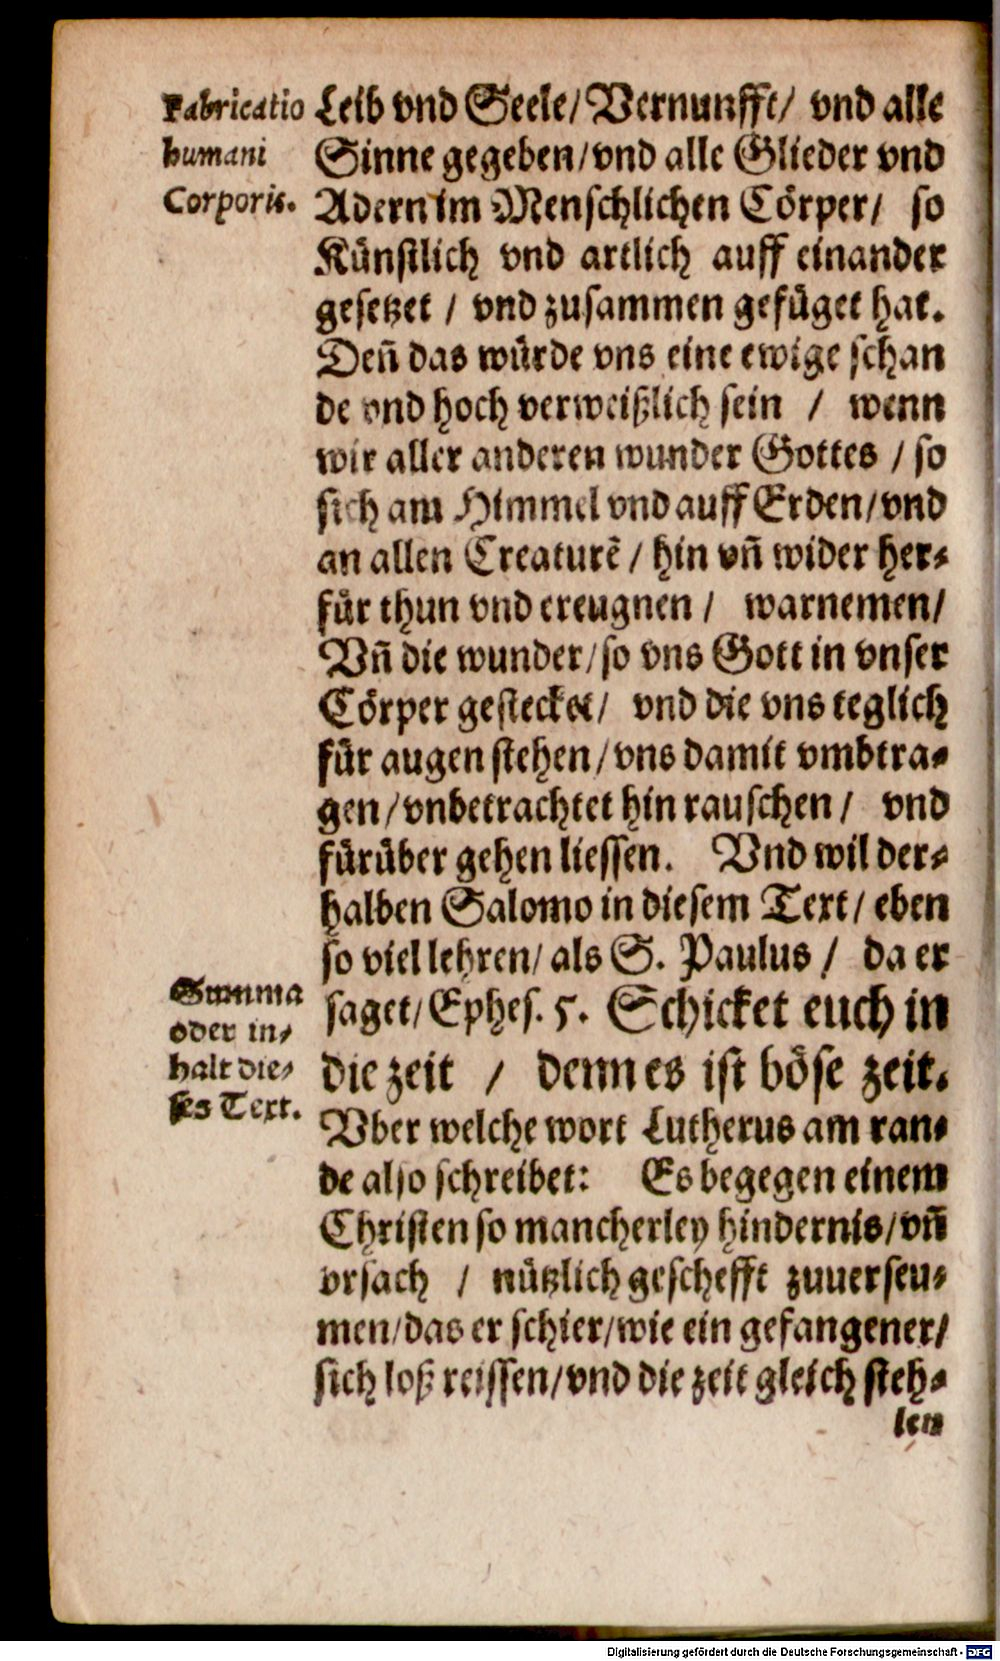 Fabricatio
humani
Corporis.
Leib vnd Seele/Vernunfft/ vnd alle
Sinne gegeben/vnd alle Glieder vnd
Adern im Menschlichen Cörper/ so
Künstlich vnd artlich auff einander
gesetzet / vnd zusammen gefüget hat.
Deñ das würde vns eine ewige schan
de vnd hoch verweißlich sein / wenn
wir aller anderen wunder Gottes / so
sich am Himmel vnd auff Erden/vnd
an allen Creaturē / hin vñ wider her-
für thun vnd ereugnen / warnemen/
Vñ die wunder/so vns Gott in vnser
Cörper gestecket/ vnd die vns teglich
für augen stehen/vns damit vmbtra-
gen/vnbetrachtet hin rauschen / vnd
fürüber gehen liessen. Vnd wil der-
halben Salomo in diesem Text/ eben
so viel lehren/ als S. Paulus / da er
saget/Ephes. 5. Schicket euch in
die zeit / denn es ist böse zeit.
Summa
oder in-
halt die-
ses Text.
Vber welche wort Lutherus am ran-
de also schreibet: Es begegen einem
Christen so mancherley hindernis/vñ
vrsach / nützlich geschefft zuuerseu-
men/das er schier/wie ein gefangener/
sich loß reissen/vnd die zeit gleich steh-
len
Digitalisierung gefördert durch die Deutsche Forschungsgemeinschaft - DFG